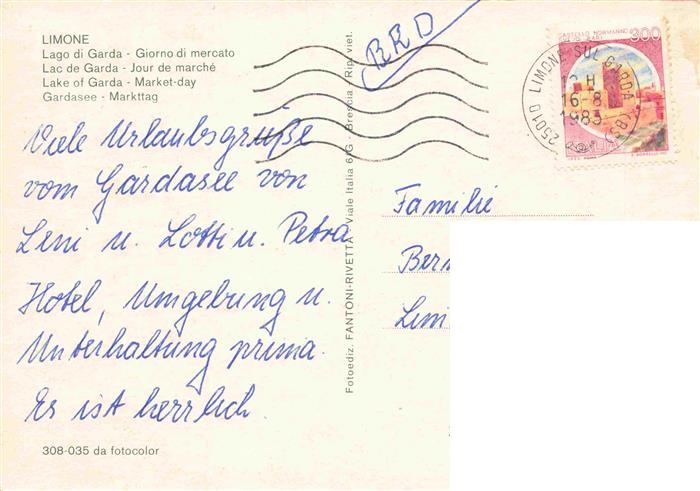 LIMONE
Lago di Garda - Giorno di mercato
Lac de Garde - Jour de marché
Lake of Garda - Market-day
Gardasee - Markttag
BRD
CASTELLO NORMANNO
BARI
300
25010 LIMONE SUL GARDA (BS)
16-8
1983
Viele Urlaubsgrüße
vom Gardasee von
Leni u. Lotti u. Petra
Hotel, Umgebung u.
Unterhaltung prima.
Es ist herrlich.
Fotoediz. FANTONI-RIVETTA - Viale Italia 6/G - Brescia - Rip. viet.
Familie
308-035 da fotocolor